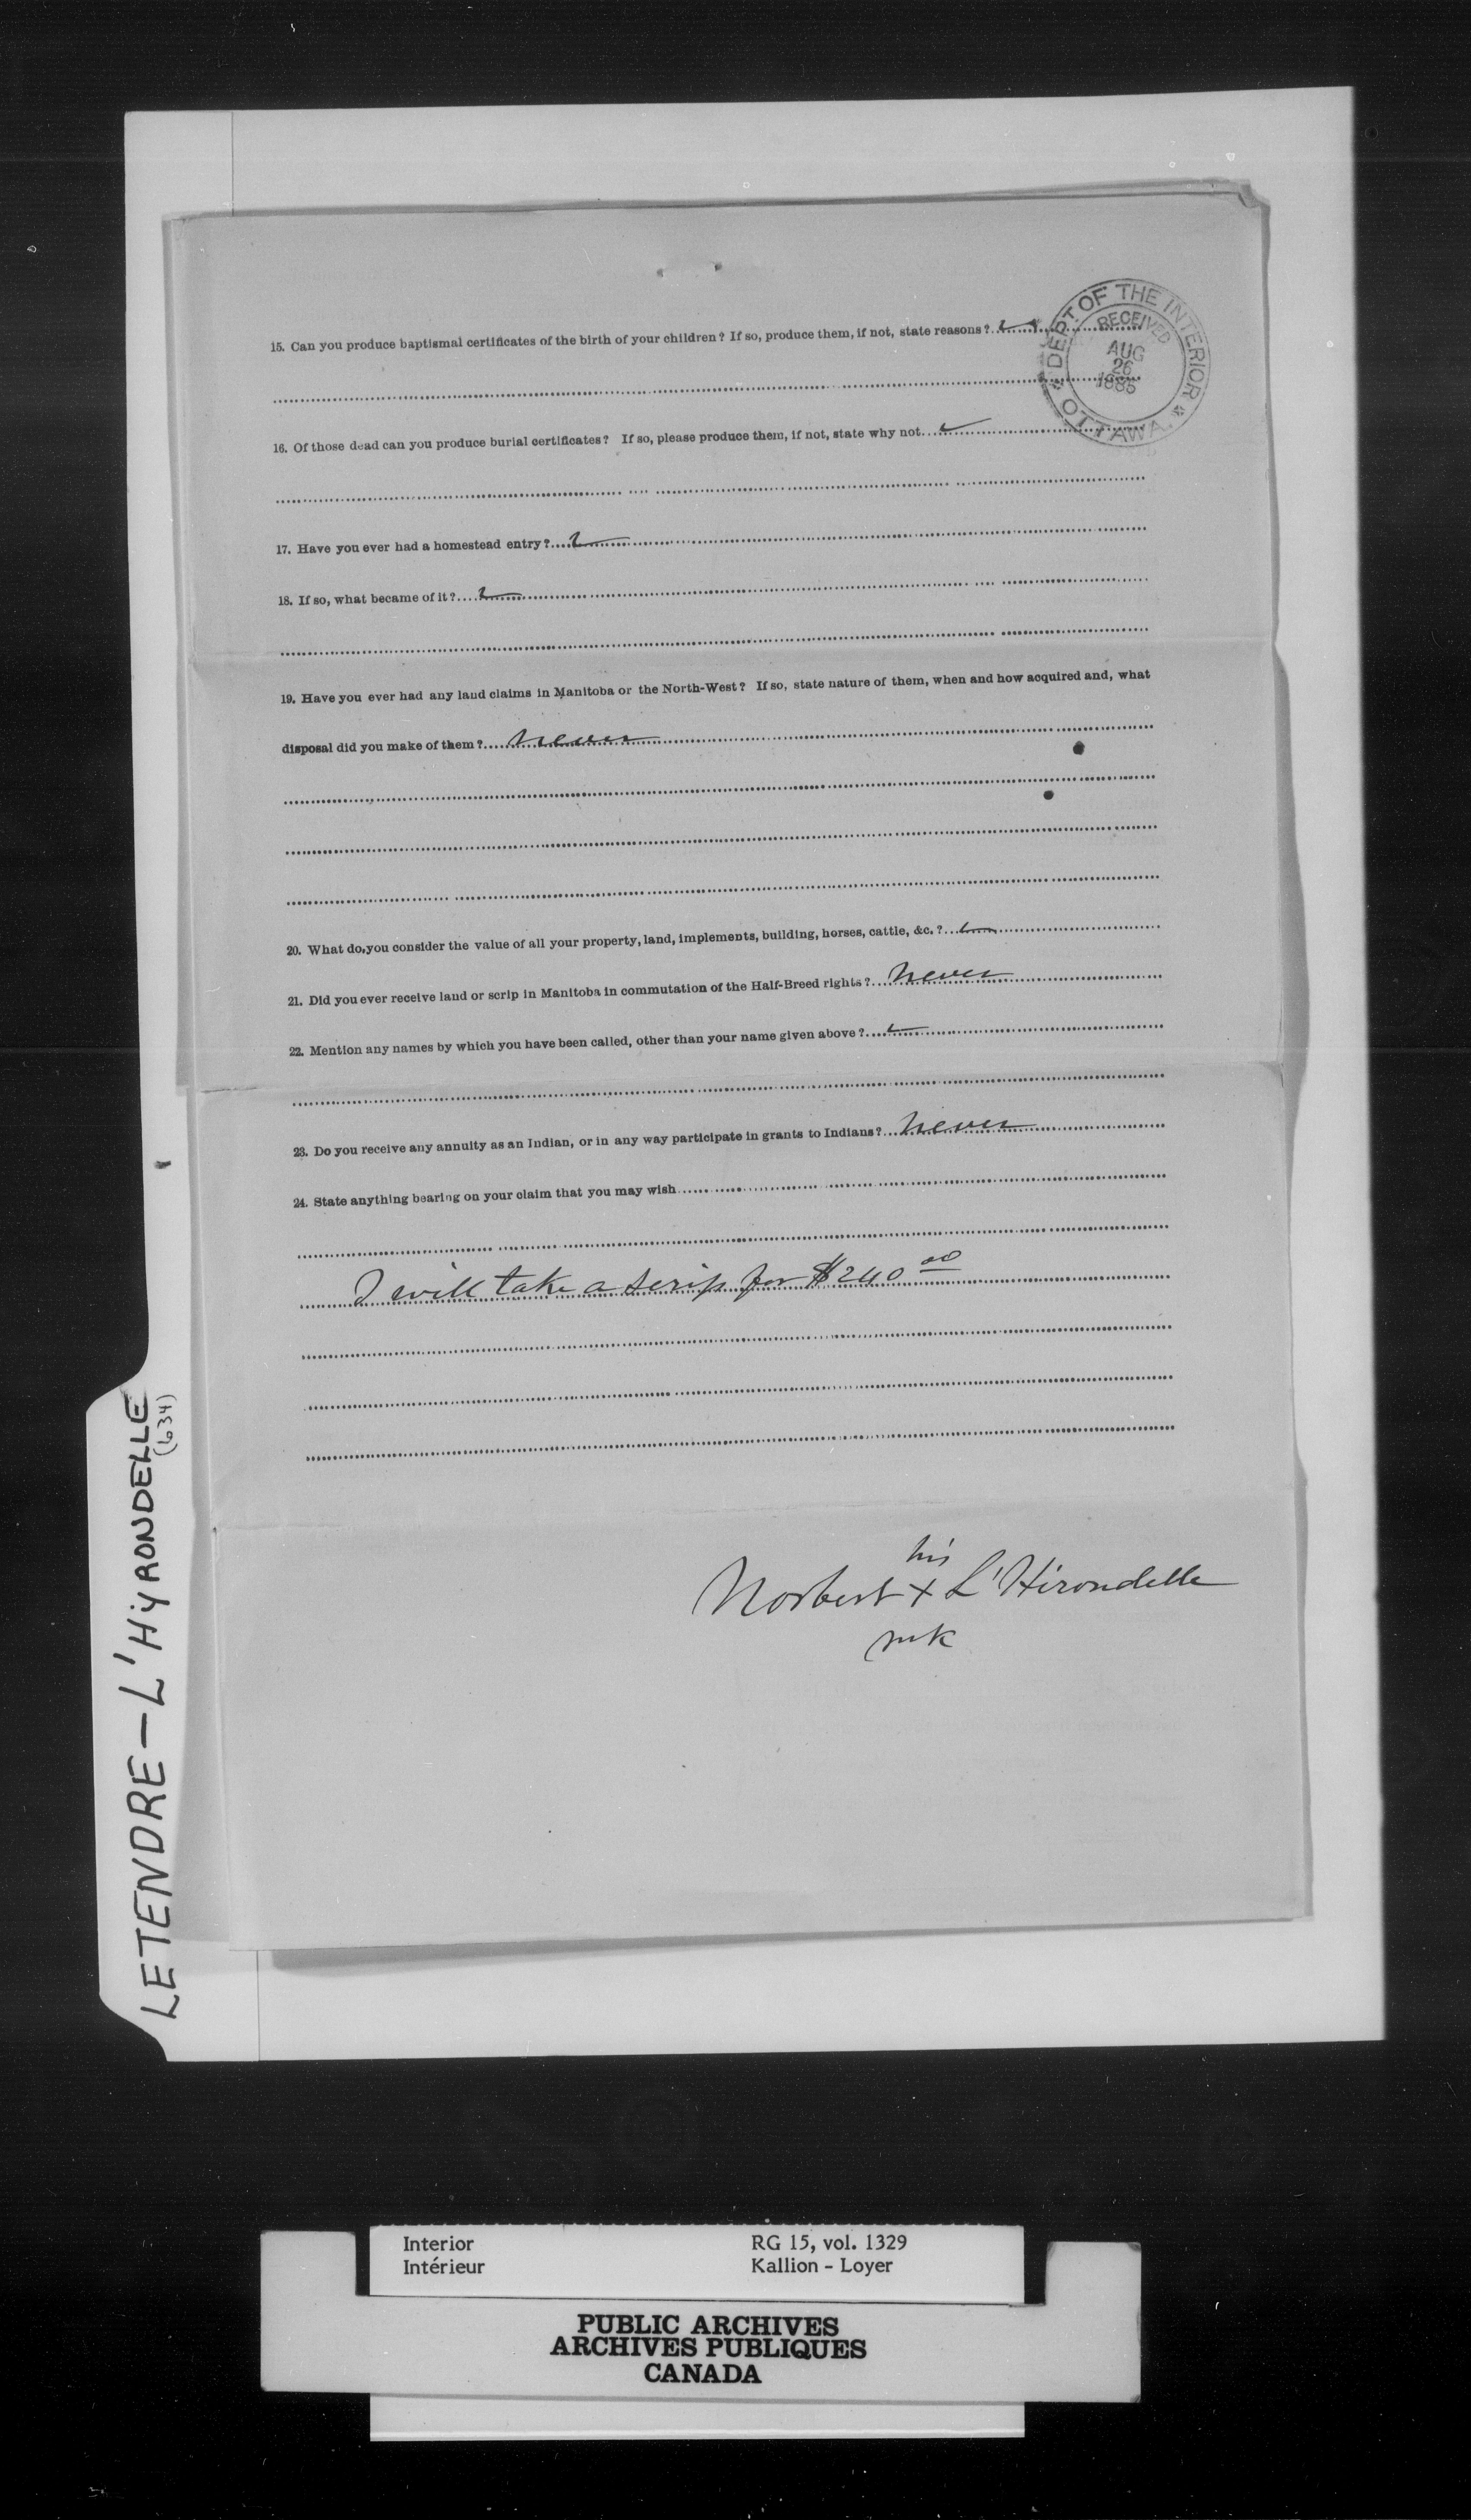 DEPT. OF THE INTERIOR * OTTAWA *
RECEIVED
AUG
26
1885
15. Can you produce baptismal certificates of the birth of your children? If so, produce them, if not, state reasons?
16. Of those dead can you produce burial certificates? If so, please produce them, if not, state why not
17. Have you ever had a homestead entry?
18. If so, what became of it?
19. Have you ever had any land claims in Manitoba or the North-West? If so, state nature of them, when and how acquired and, what
disposal did you make of them? Never
20. What do you consider the value of all your property, land, implements, building, horses, cattle, &c.?
21. Did you ever receive land or scrip in Manitoba in commutation of the Half-Breed rights? Never
22. Mention any names by which you have been called, other than your name given above?
23. Do you receive any annuity as an Indian, or in any way participate in grants to Indians? Never
24. State anything bearing on your claim that you may wish
I will take a scrip for $240 00
his
Norbert X L'Hirondelle
mk
LETENDRE - L'HIRONDELLE
(634)
Interior RG 15, vol. 1329
Intérieur Kallion - Loyer
PUBLIC ARCHIVES
ARCHIVES PUBLIQUES
CANADA